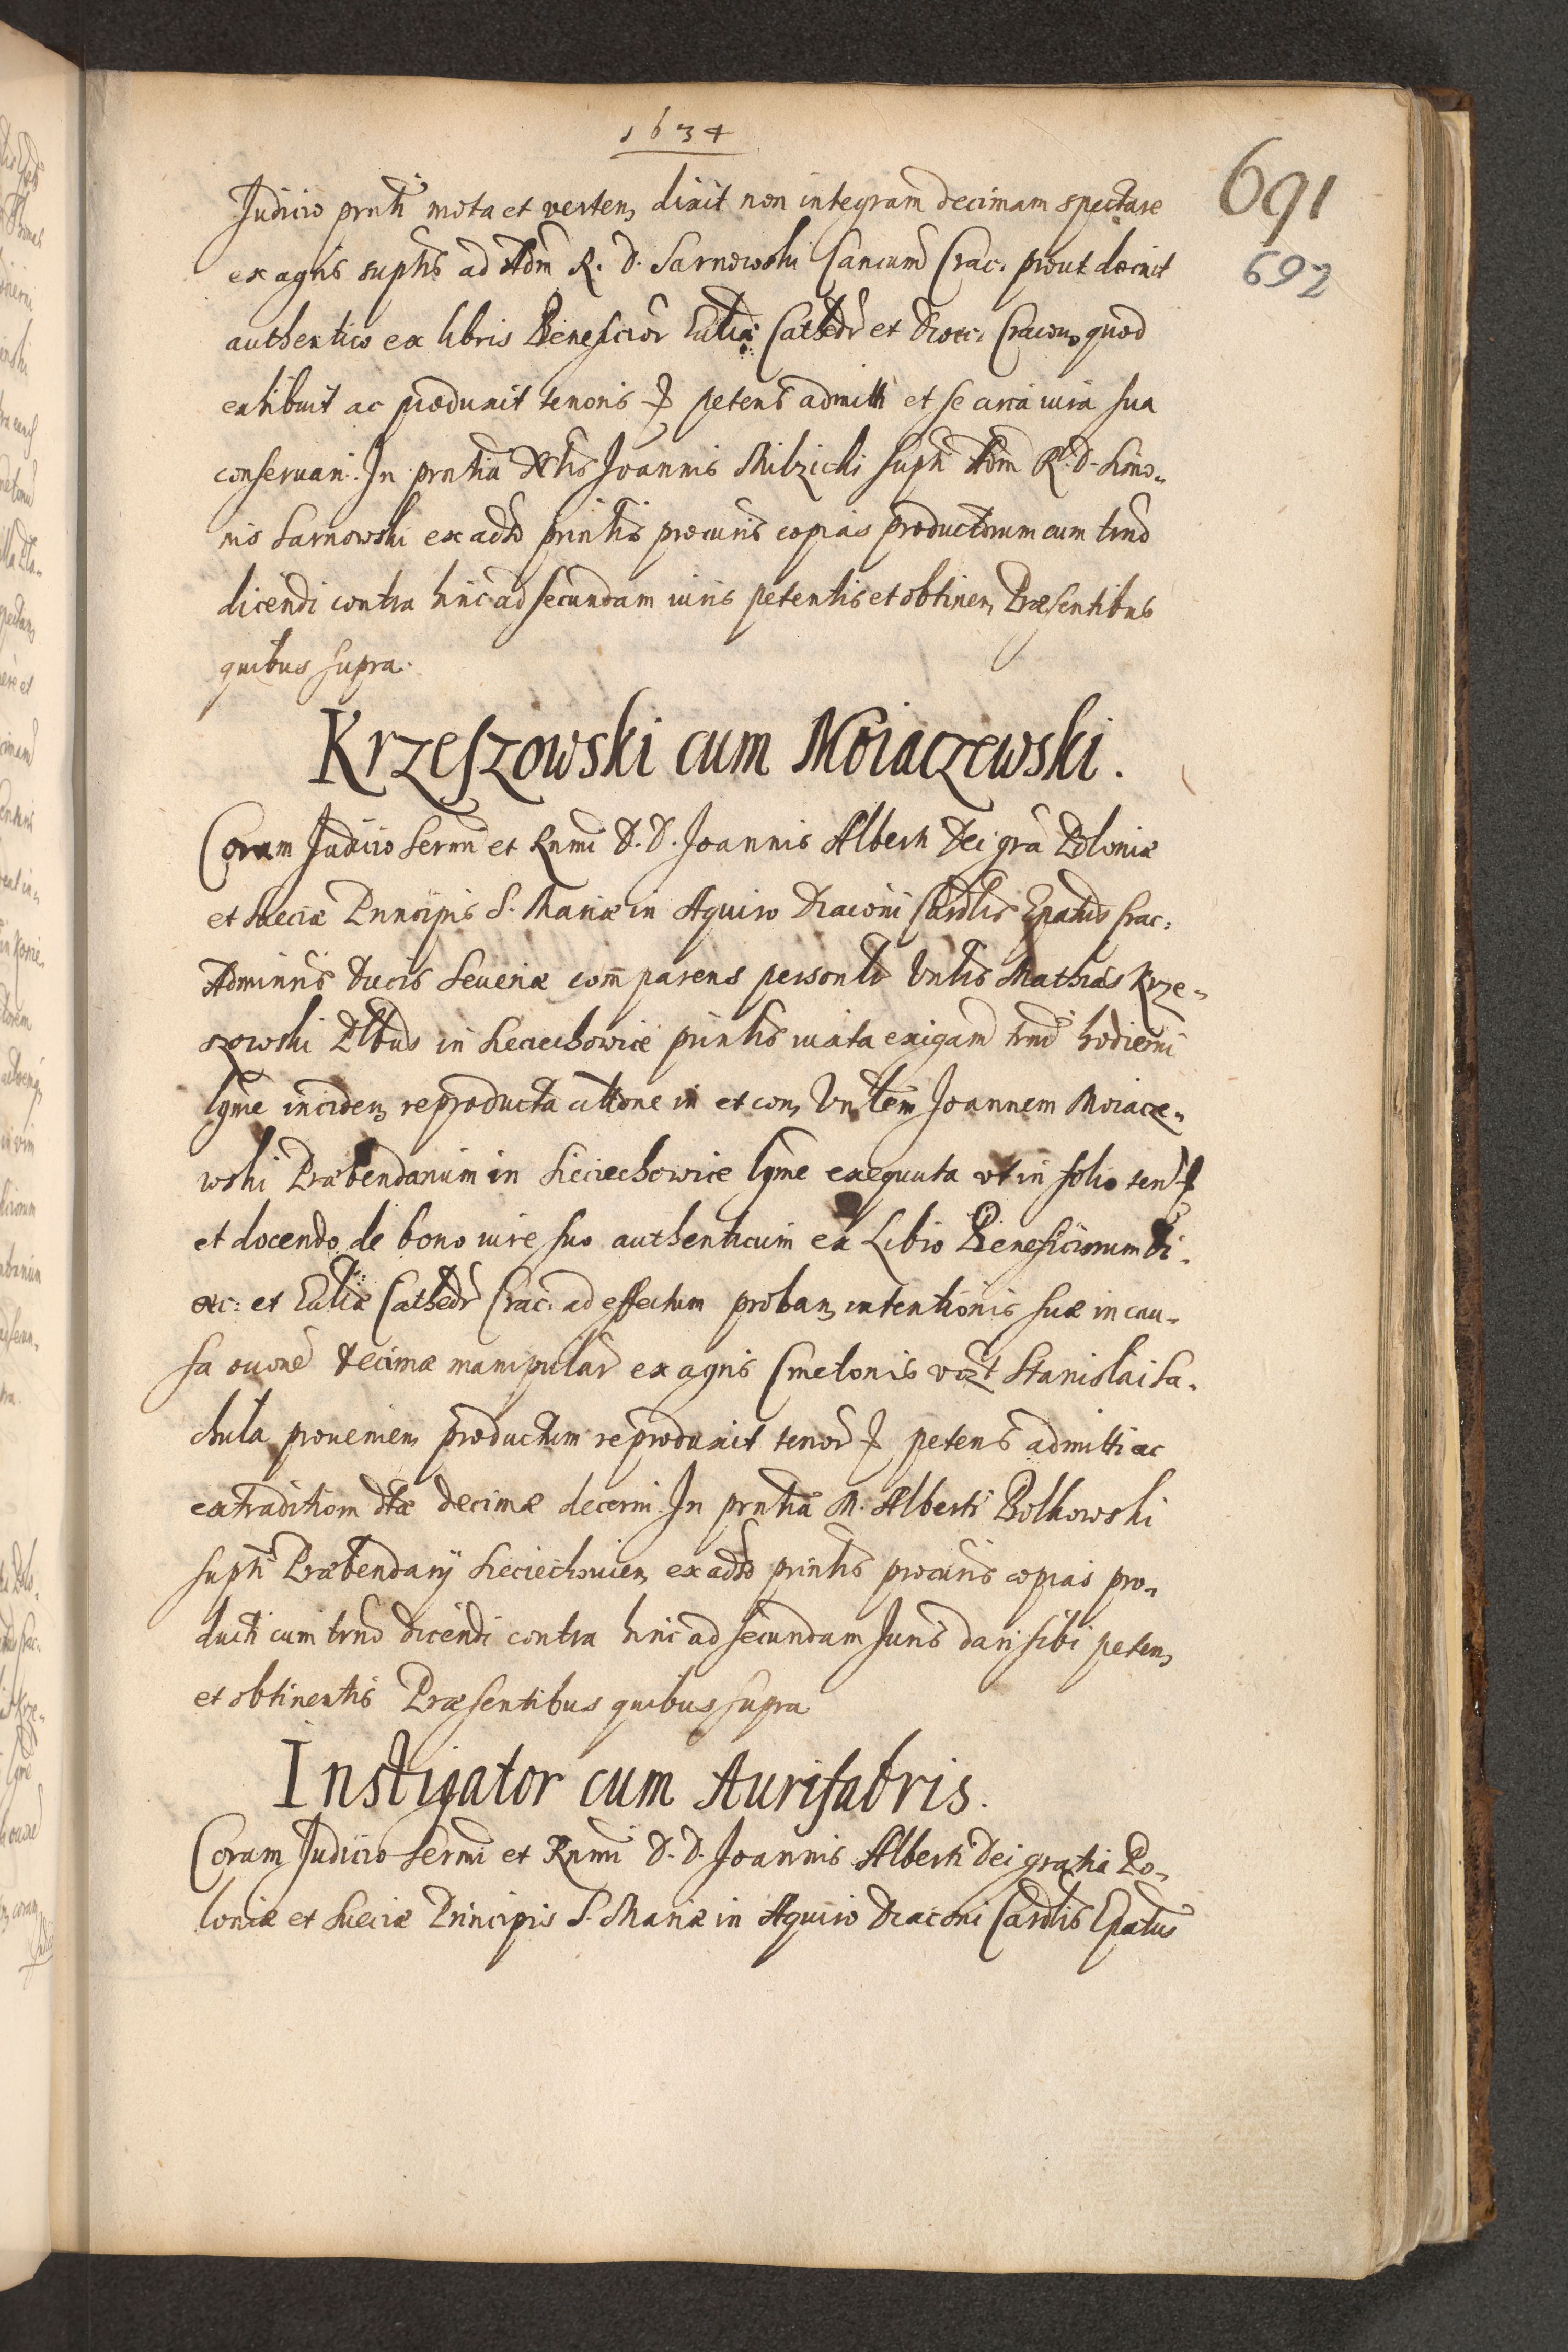 1634
691
692
Judicio prnti mota et verten, dixit non integram decimam spectare
ex agris suptis ad Adm R. D. Sarnowski Cancum Crac. prout docuit
authentico ex libris Beneficior Eccliæ Cathedr et Dioec: Cracou, quod
exhibuit ac produxit tenoris petens admitti et se circa iura sua
conseruari. In prntia Joannis Milzicki supti Adm R. D. Simo-
nis Sarnowski ex aduo prinlis procuris copias productorum cum trno
dicendi contra hinc ad secundam iuris petentis et obtinen, Præsentibus
quibus supra.
Krzeszowski cum Moiaczewski.
Coram Judicio Sermi et Rnmi D. D. Joannis Alberti Dei gra Poloniæ
et Sueciæ Principis S. Mariæ in Aquiro Diaconi Cardlis Epatus Crac:
Adminris Ducis Seueriæ comparens personlr Vnlis Mathias Krze-
szowski Plbnus in Sieciechowice prinlis iuxta exigam trni hodierni
lgme inciden, reproducta cittone in et con, Vnlem Joannem Moiacze-
wski Præbendarium in Sieciechowice lgme exequuta vt in folio ten
et docendo de bono iure suo authenticum ex Libro Beneficiorum Di-
oec: et Eccliæ Cathedr Crac: ad effectum proban, intentionis suæ in cau-
sa decimæ manipular ex agris Cmetonis vozt Stanislai Sa-
chula prouenien, productum reproduxit tenor petens admitti ac
extraditiom dtæ decimæ decerni. In prntia M. Alberti Bolkowski
supti Præbendarij Sieciechouien, ex aduo prinlis procuris copias pro-
ducti cum trno dicendi contra hinc ad secundam Juris dari sibi peten,
et obtinentis Præsentibus quibus supra
Instigator cum Aurifabris.
Coram Judicio Sermi et Rnmi D. D. Joannis Alberti Dei gratia Po-
loniæ et Sueciæ Principis S. Mariæ in Aquiro Diaconi Cardlis Epatus